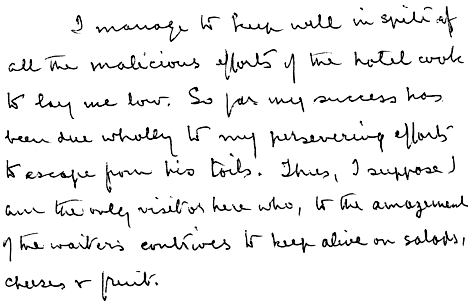 I manage to keep well in spite of
all the malicious efforts of the hotel cook
to lay me low. So far my success has
been due wholly to my persevering efforts
to escape from his toils. Thus, I suppose I
am the only visitor here who, to the amazement
of the waiters contrives to keep alive on salads,
cheeses & fruit.